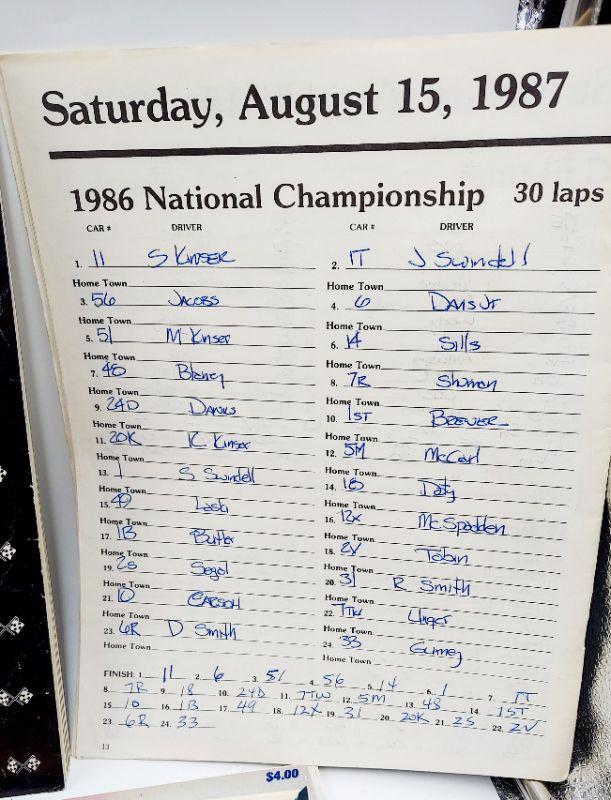 Saturday, August 15, 1987
1986 National Championship 30 laps
CAR # DRIVER CAR # DRIVER
1. 11 S KINSER 2. 1T J Swindell
Home Town Home Town
3. 56 JACOBS 4. 6 DAVIS JR
Home Town Home Town
5. 51 M Kinser 6. 14 Sills
Home Town Home Town
7. 48 Blaney 8. 7R Shuman
Home Town Home Town
9. 24D DANKS 10. 1ST BREWER
Home Town Home Town
11. 20K K. Kinser 12. 5M McCarl
Home Town Home Town
13. 1 S Swindell 14. 18 Doty
Home Town Home Town
15. 49 16. 12X McSpadden
Home Town Home Town
17. 1B Butler 18. 2V Tobin
Home Town Home Town
19. 2S Segol 20. 31 R Smith
Home Town Home Town
21. 10 CARSON 22. 7TW Unger
Home Town Home Town
23. 6R D Smith 24. 33 Gurney
Home Town Home Town
FINISH: 1. 11 2. 6 3. 51 4. 56 5. 14 6. 1 7. 1T
8. 7R 9. 18 10. 24D 11. 7TW 12. 5M 13. 48 14. 1ST
15. 10 16. 1B 17. 49 18. 12X 19. 31 20. 20K 21. 2S 22. 2V
23. 6R 24. 33
13
$4.00